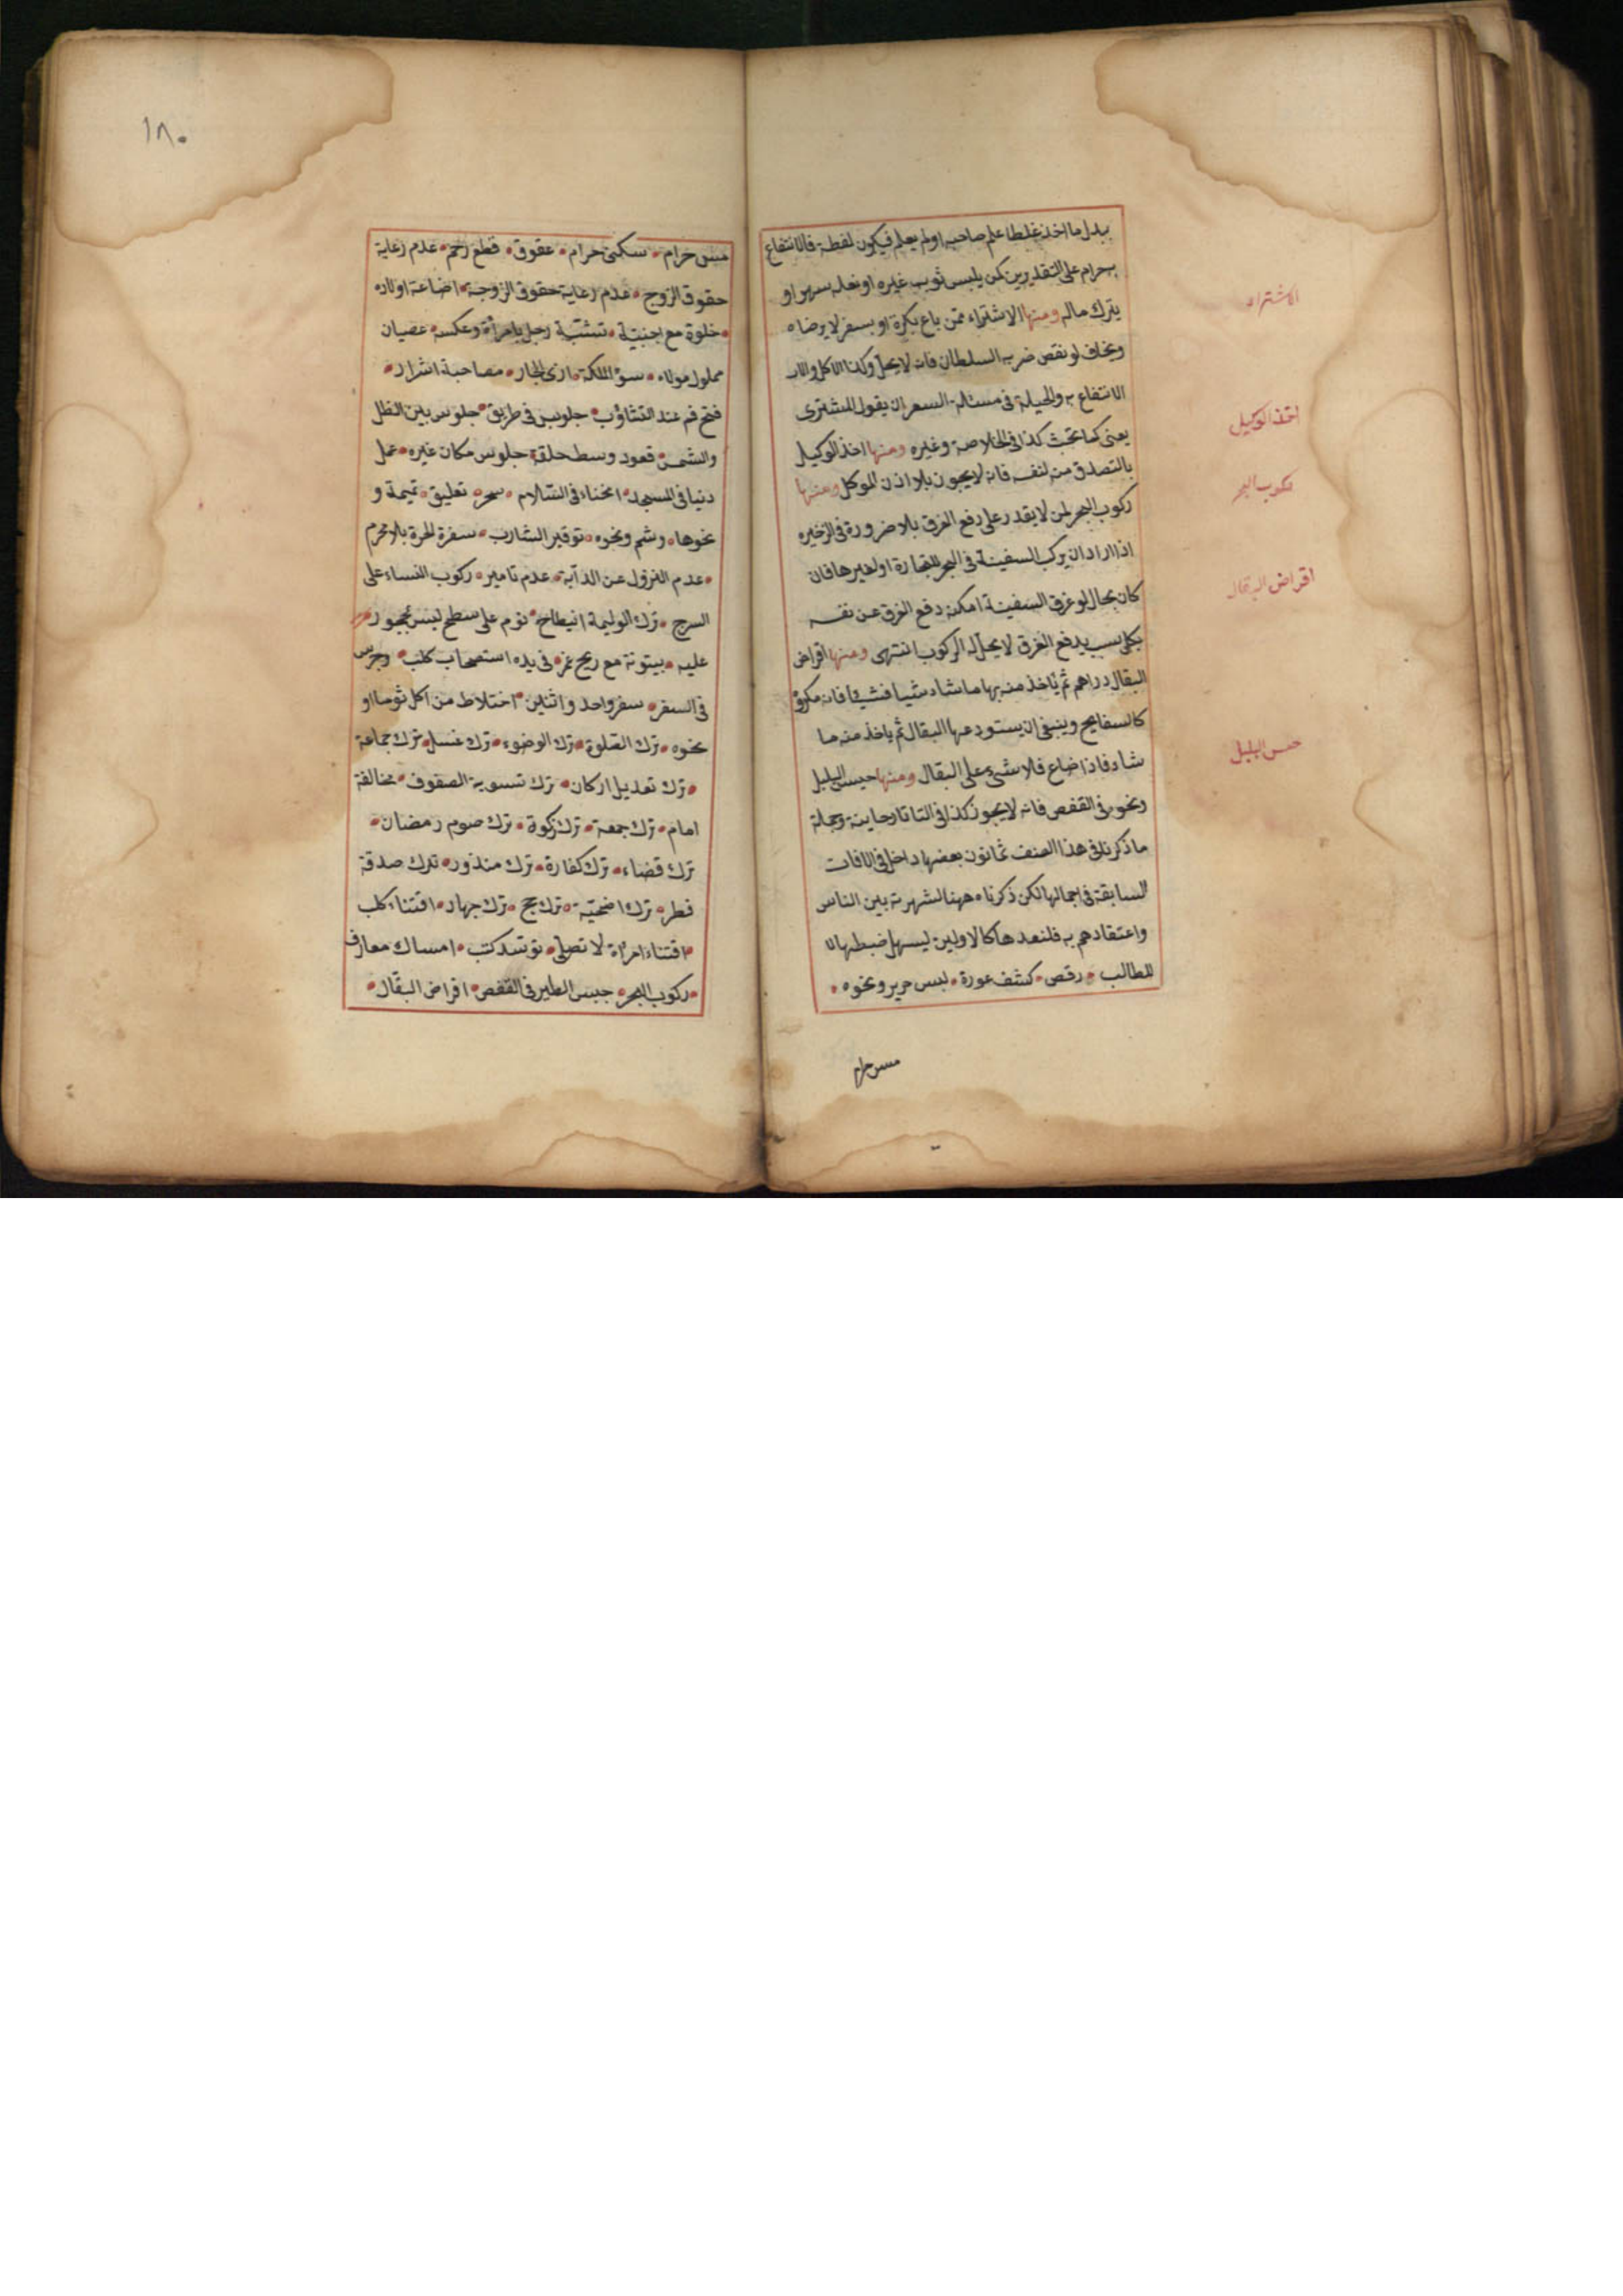 بدل ما اخذ غلطا علم صاحبه او لم يعلم فيكون لقطة فالانتفاع
به حرام على التقديرين كمن يلبس ثوب غيره او نعله سهوا و
يترك ماله ومنها الاشتراء ممن باع بكره او بسعر لا يرضاه
ويخاف لو نقص ضربه السلطان فانه لا يحل وكذا الاكل والا
الانتفاع به والحيلة فى مسئلة السعر ان يقول المشترى
بعنى كما تحب كذا فى الخلاصة وغيره ومنها اخذ الوكيل
بالتصدق منه لنفسه فانه لا يجوز بلا اذن الموكل ومنها
ركوب البحر لمن لا يقدر على دفع الغرق بلا ضرورة فى الذخيره
اذا اراد ان يركب السفينة فى البحر للتجارة او لغيرها فان
كان بحال لو غرق السفينة امكنه دفع الغرق عن نفسه
بكل سبب يدفع الغرق لا يحل له الركوب انتهى ومنها اقراض
البقال دراهم ثم يأخذ منه بها ما شاء شيئا فشيئا فانه مكروه
كالسفايح وينبغى ان يستودعها البقال ثم ياخذ منه ما
شاء فاذا ضاع فلا شئ على البقال ومنها حبس البلبل
ونحوه فى القفص فانه لا يجوز كذا فى التاتارخاينة وجملة
ما ذكرنا فى هذا الصنف ثمانون بعضها داخل فى الافات
السابقة فى اجمالها لكن ذكرناه ههنا لشهرته بين الناس
واعتقادهم به فلنعدها كالاولين ليسهل ضبطها لل
للطالب رقص كشف عورة لبس حرير ونحوه
مس حرام
الاشتراء
اخذ الوكيل
ركوب البحر
اقراض البقال
حبس البلبل
١٨٠
مس حرام سكنى حرام عقوق قطع رحم عدم رعاية
حقوق الزوج عدم رعاية حقوق الزوجة اضاعة اولاده
خلوة مع اجنبية تشبه رجل بامرأة وعكسه عصيان
مملوك مولاه سوء الملكة اذى الجار مصاحبة اشرار
فتح فم عند التثاؤب جلوس فى طريق جلوس بين الظل
والشمس قعود وسط حلقة جلوس مكان غيره عمل
دنيا فى المسجد انحناء فى السلام سحر تعليق تميمة و
نحوها وشم ونحوه توقير الشارب سفرة الحرة بلا محرم
عدم النزول عن الدابة عدم تامير ركوب النساء على
السرج ترك الوليمة انبطاح نوم على سطح ليس بمحجور
عليه بيتوتة مع ريح غمر فى يده استصحاب كلب وجرس
فى السفر سفر واحد واثنين اختلاط من اكل ثوما او
نحوه ترك الصلوة ترك الوضوء ترك غسل ترك جماعة
ترك تعديل اركان ترك تسوية الصفوف مخالفة
امام ترك جمعة ترك زكوة ترك صوم رمضان
ترك قضاء ترك كفارة ترك منذور ترك صدقة
فطر ترك اضحية ترك حج ترك جهاد اقتناء كلب
اقتناء امرأة لا تصلى توسد كتب امساك معازف
ركوب البحر حبس الطير فى القفص اقراض البقال